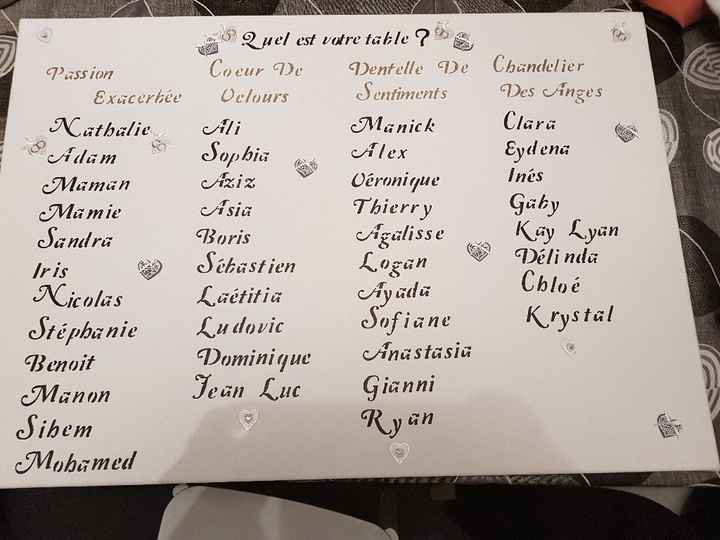 Quel est votre table ?
Passion
Exacerbée
Nathalie
Adam
Maman
Mamie
Sandra
Iris
Nicolas
Stéphanie
Benoit
Manon
Sihem
Mohamed
Coeur De
Velours
Ali
Sophia
Aziz
Asia
Boris
Sébastien
Laétitia
Ludovic
Dominique
Jean Luc
Dentelle De
Sentiments
Manick
Alex
Véronique
Thierry
Agalisse
Logan
Ayada
Sofiane
Anastasia
Gianni
Ryan
Chandelier
Des Anges
Clara
Eydena
Inés
Gaby
Kay Lyan
Délinda
Chloé
Krystal